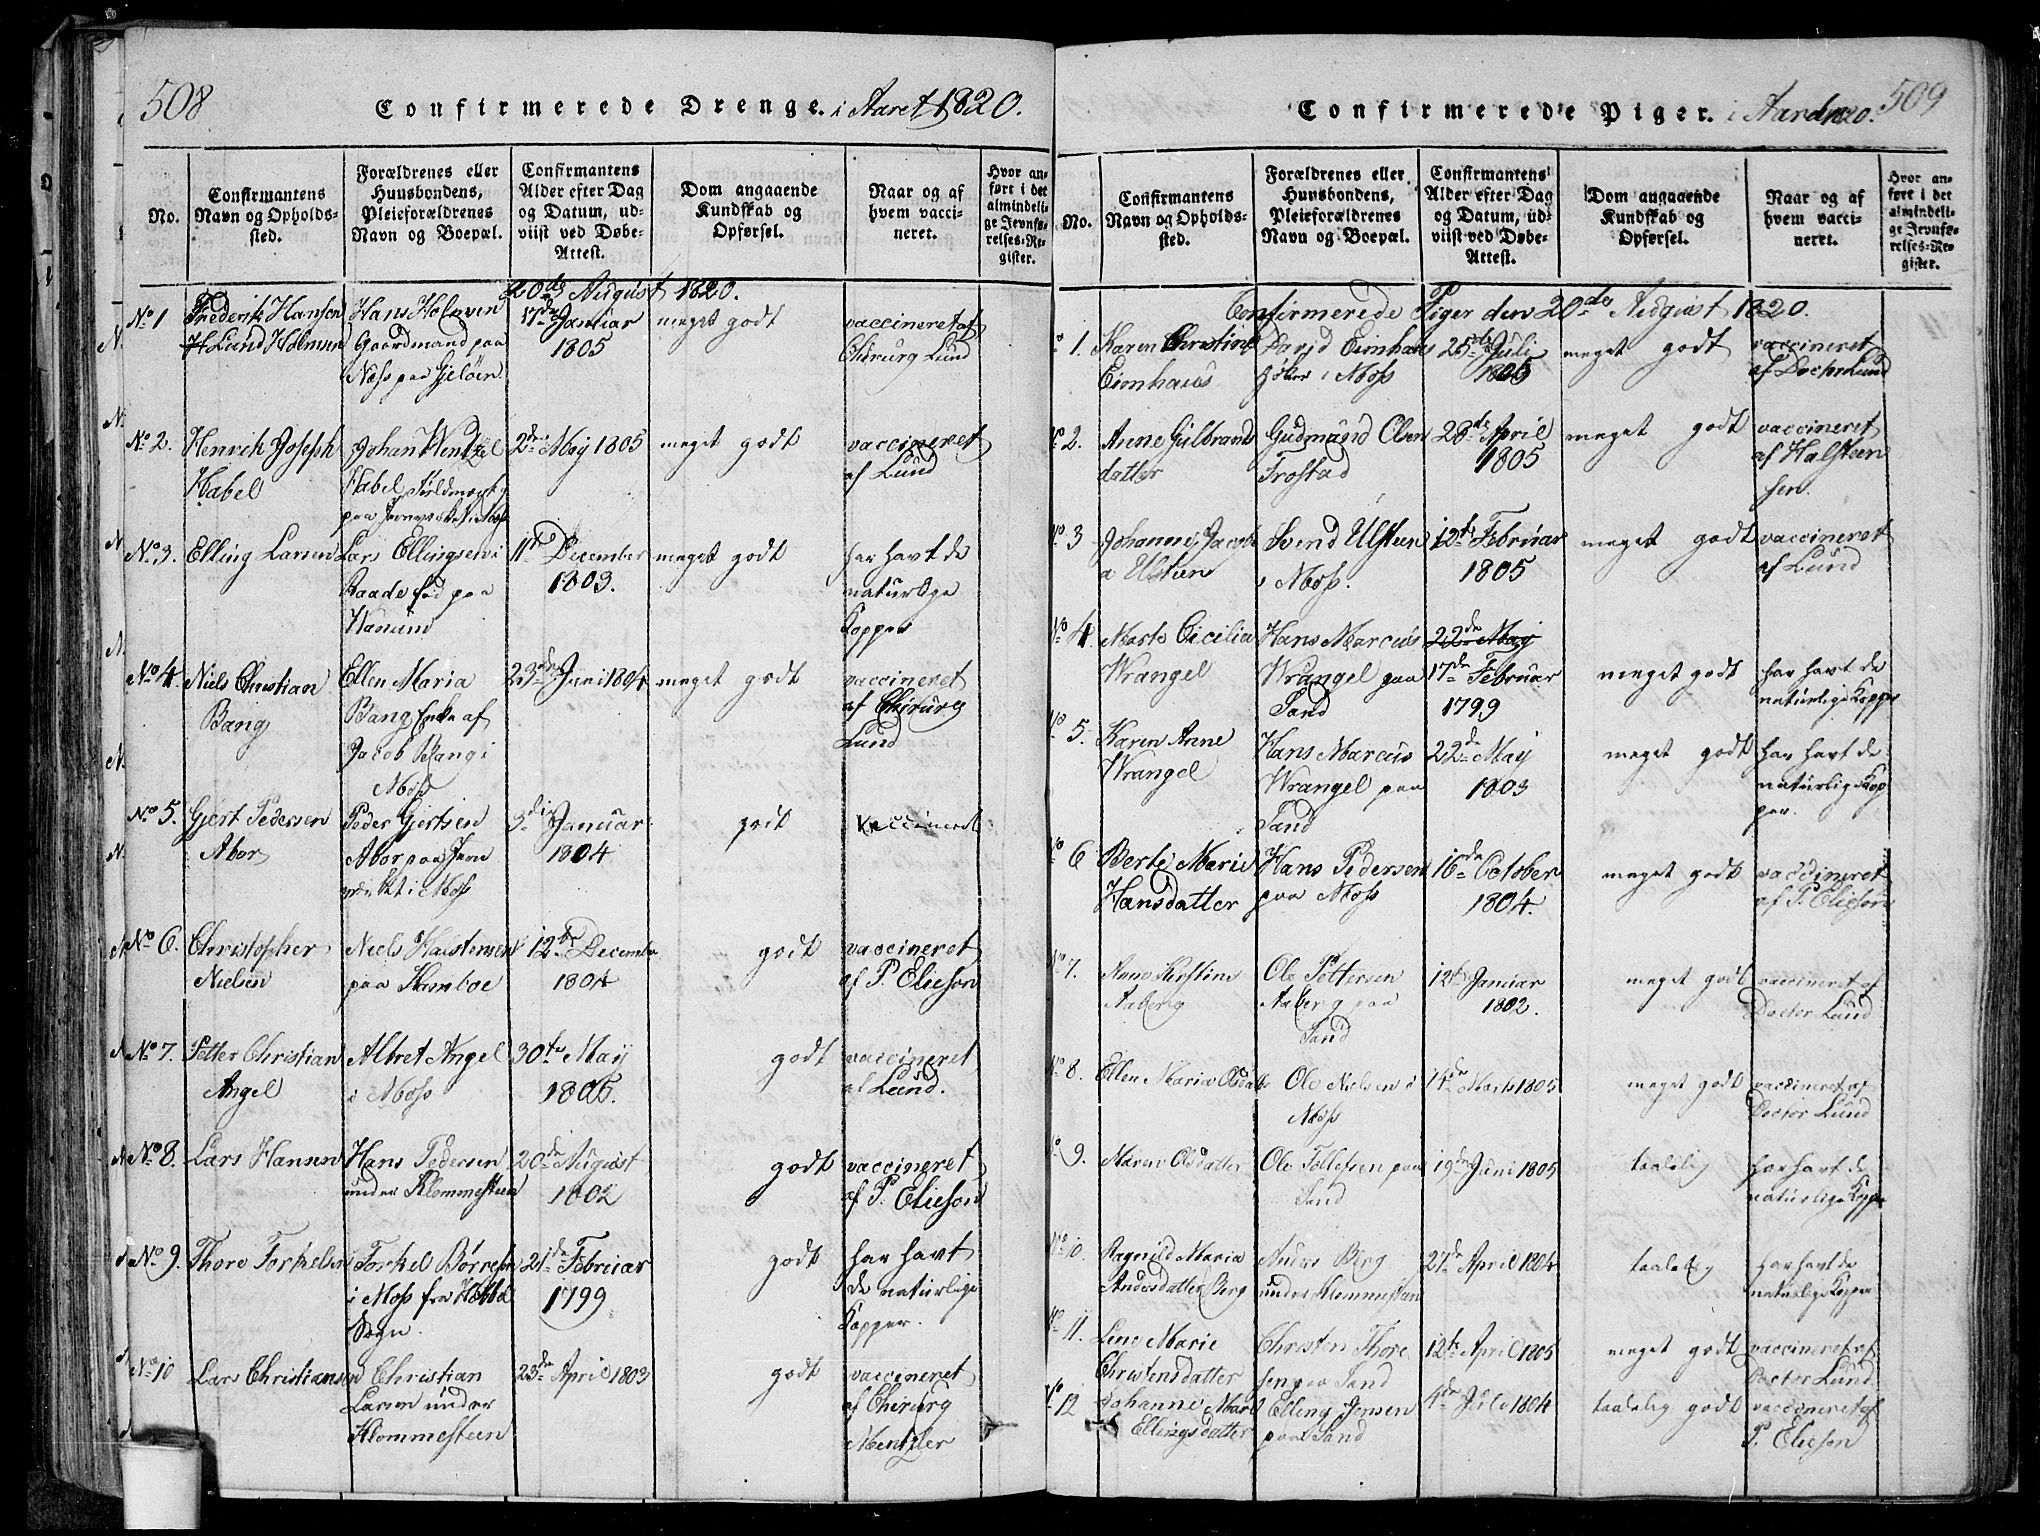 508
Confirmerede Drenge. i Aaret 1820.
No.
Confirmantens Navn og Opholds-sted.
Forældrenes eller Huusbondens, Pleieforældrenes Navn og Boepæl.
Confirmantens Alder efter Dag og Datum, ud-viist ved Døbe-Attest.
Dom angaaende Kundskab og Opførsel.
Naar og af hvem vacci-neret.
Hvor an-ført i det almindeli-ge Jevnfø-relses-Re-gister.
20de August 1820.
No 1
Frederik Hansen
Lund Holmsen
Hans Holmsen
Gaardmand paa
Næss paa Gjeløen
17de Januar
1805
meget godt
vaccineret af
Chirurg Lund
No 2.
Henrik Joseph
Habel
Johan Wentzel
Habel
paa Jernværket i Moss
2de May 1805
meget godt
vaccineret
af Lund
No 3.
Elling Larsen
Lars Ellingsen i
Raade fød paa
11te December
1803.
meget godt
har havt de
naturlige
Kopper
No 4.
Niels Christian
Bang
Ellen Maria
Bang Enke af
Jacob Bang i
Moss
23de Juni 1804
meget godt
vaccineret
af Chirurg
Lund
No 5.
Gjert Pedersen
Abor
Peder Gjertsen
Abor paa Jern
værket i Moss
3die Januar
1804
godt
vaccineret
No 6.
Christopher
Nielsen
Niels Halstensen
paa
12te December
1804
godt
vaccineret
af P. Elieson
No 7.
Petter Christian
Angel
Albret Angel
i Moss
30te May
1805.
godt
vaccineret
af Lund.
No 8.
Lars Hansen
Hans Pedersen
under Klommesteen
20de August
1802
godt
vaccineret
af P. Elieson
No 9.
Thore Torkelsen
Torkel Børresen
i Moss fra
Sogn.
21de Februar
1799
godt
har havt
de naturlige
Kopper.
No 10
Lars Christiansen
Christian
Larsen under
Klommesteen
23de April 1803
godt
vaccineret
af Chirurg
Mentzler
509
Confirmerede Piger. i Aaret 1820.
No.
Confirmantens Navn og Opholds-sted.
Forældrenes eller Huusbondens, Pleieforældrenes Navn og Boepæl.
Confirmantens Alder efter Dag og Datum, ud-viist ved Døbe-Attest.
Dom angaaende Kundskab og Opførsel.
Naar og af hvem vacci-neret.
Hvor an-ført i det almindeli-ge Jevnfø-relses-Re-gister.
Confirmerede Piger den 20de August 1820.
No 1.
Karen Christine
Eimhaus
David Eimhaus
i Moss
25de Juli
1805
meget godt
vaccineret
af Doctor Lund
No 2.
Anne Gulbrands
datter
Gudmund Olsen
Trostad
28de April
1805
meget godt
vaccineret
af Halsteen
sen.
No 3
Johanne Jacob
a Ulsteen
Svend Ulsteen
i Moss.
12te Februar
1805
meget godt
vaccineret
af Lund
No 4
Marte Cicilia
Wrangel
Hans Marcus
Wrangel paa
Sand
22de May
17de Februar
1799
meget godt
har havt de
naturlige Kopper
No 5.
Karen Anne
Wrangel
Hans Marcus
Wrangel paa
Sand
22de May
1803
meget godt
har havt de
naturlige Kop
per.
No 6
Berte Marie
Hansdatter
Hans Pedersen
paa Moss
16de October
1804.
meget godt
vaccineret
af P. Elieson
No 7.
Anne Kirstine
Aaberg
Ole Pettersen
Aaberg paa
Sand
12te Januar
1802.
meget godt
vaccineret af
Doctor Lund
No 8.
Ellen Maria Olsdatter
Ole Nielsen i
Moss
14de Marts 1805
meget godt
vaccineret af
Doctor Lund
No 9.
Maren Olsdatter
Ole Tollefsen paa
Sand
19de Juni 1805
taalelig
har havt de
naturlige Kopper
No 10.
Ragnild Maria
Andersdatter Berg
Anders Berg
under Klommesteen
27de April 1804
taalelig
har havt de
naturlige Kopper
No 11.
Lene Marie
Christensdatter
Christen Thore
sen paa Sand
12te April 1805
meget godt
vaccineret af
Doctor Lund
No 12
Johanne Marie
Ellingsdatter
Elling Jensen
paa Sand
4de Juli 1804
taalelig godt
vaccineret af
P. Elieson